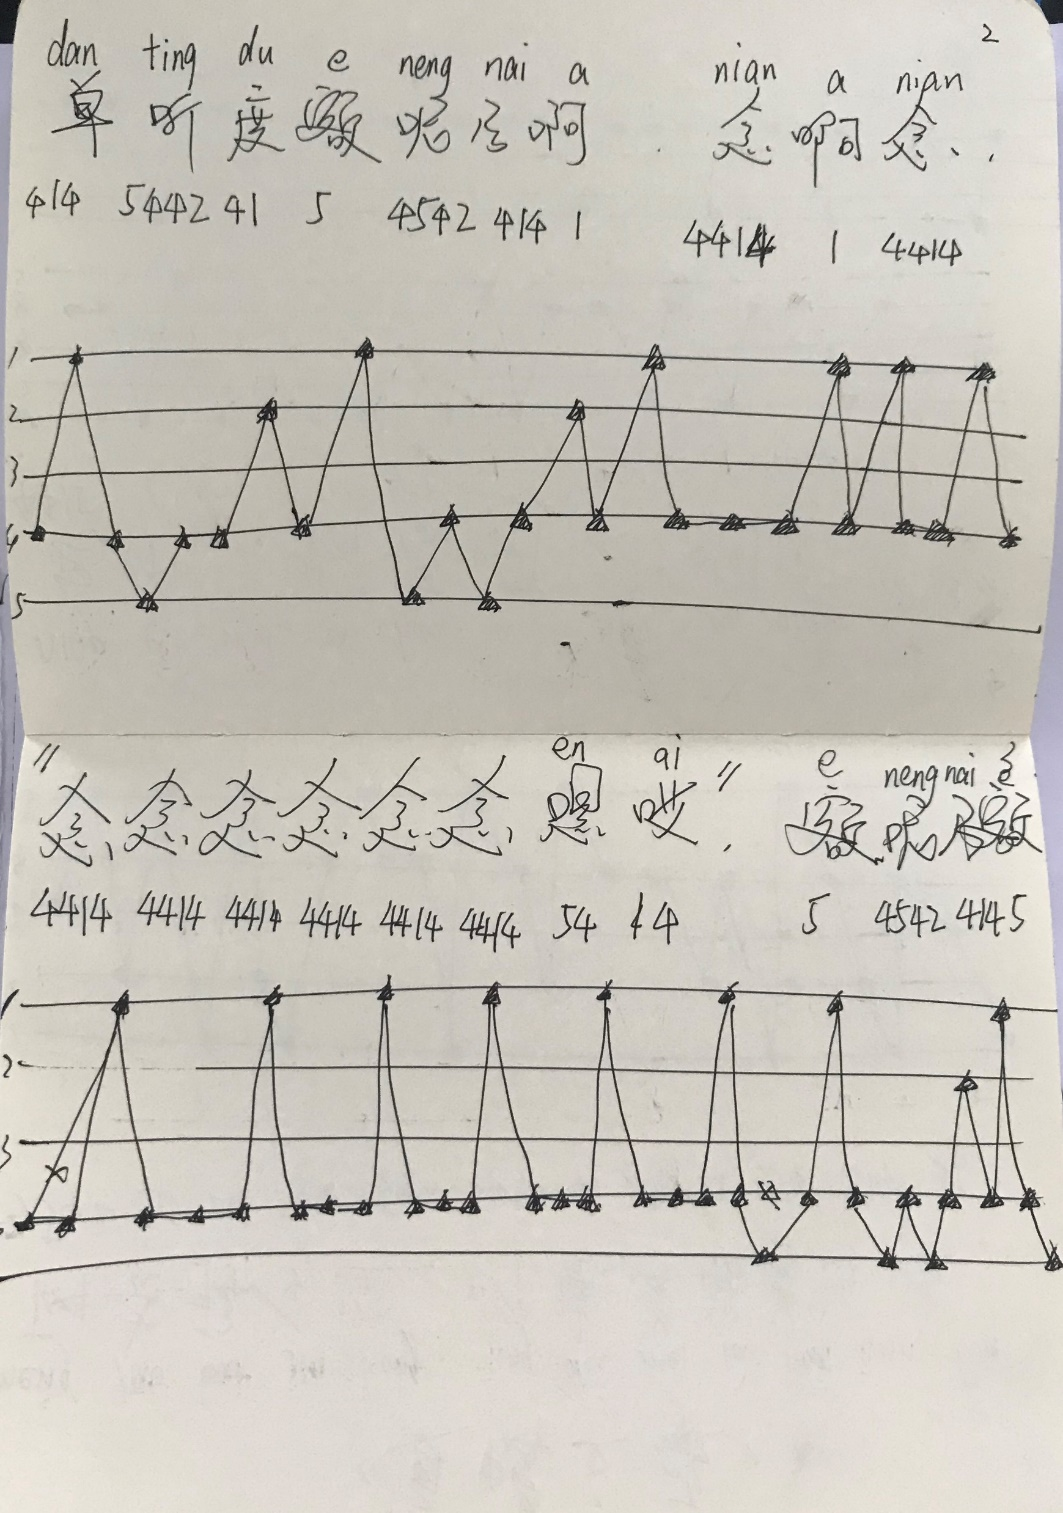 2
dan ting du e neng nai a nian a nian
单 听 度 呢 啊 念 啊 念..
414 5442 41 5 4542 414 1 4414 1 4414
1
2
3
4
5
en ai e neng nai
"念,念,念,念,念,念,嗯,哎",呢
4414 4414 4414 4414 4414 4414 54 14 5 4542 414 5
1
2
3